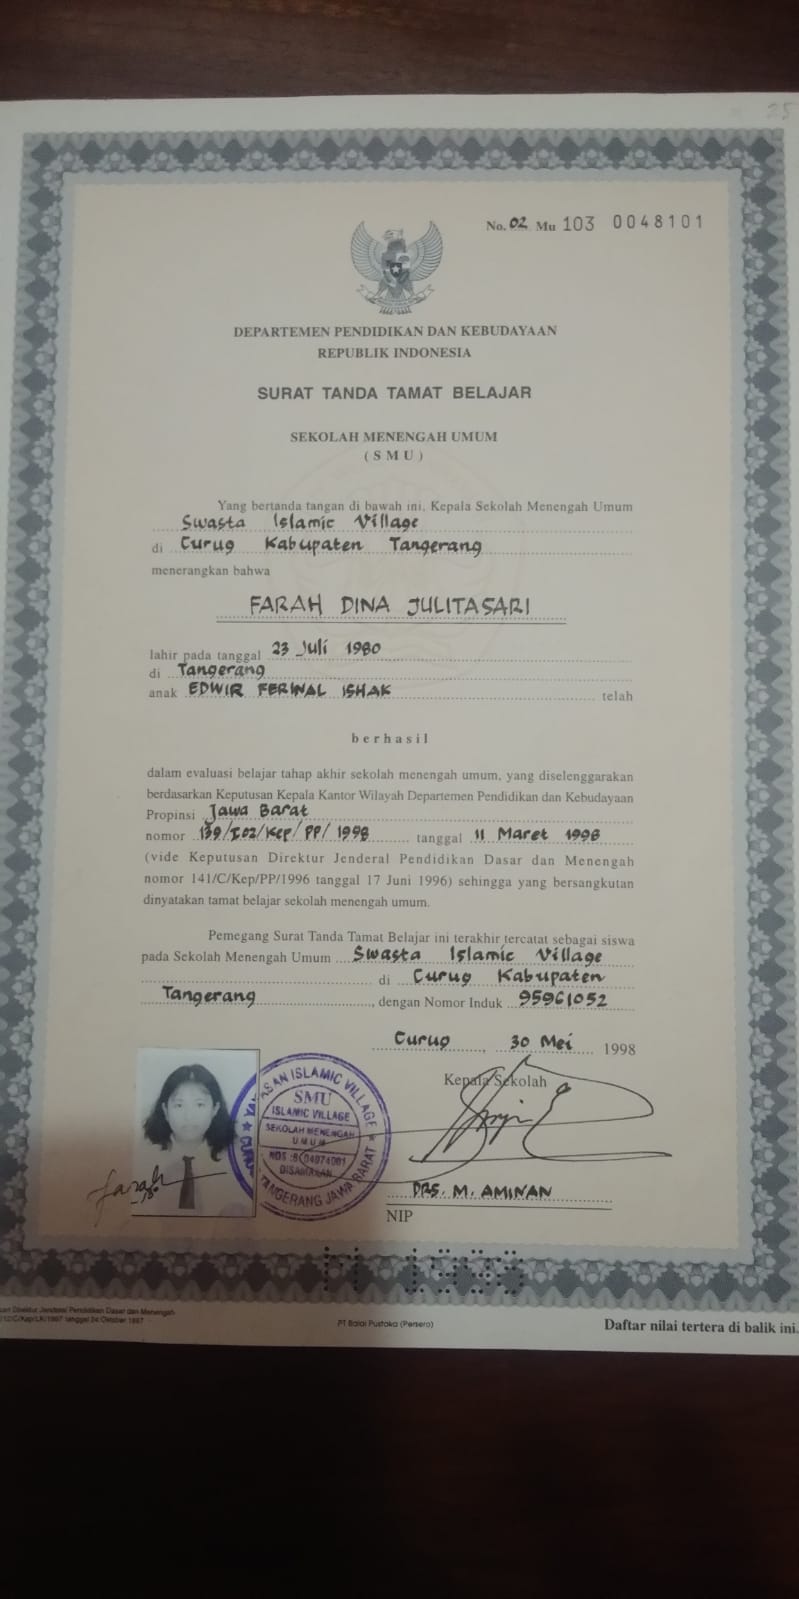 25
No. 02 Mu 103 0048101
DEPARTEMEN PENDIDIKAN DAN KEBUDAYAAN
REPUBLIK INDONESIA
SURAT TANDA TAMAT BELAJAR
SEKOLAH MENENGAH UMUM
( S M U )
Yang bertanda tangan di bawah ini, Kepala Sekolah Menengah Umum
Swasta Islamic Village
di Curug Kabupaten Tangerang
menerangkan bahwa
FARAH DINA JULITASARI
lahir pada tanggal 23 Juli 1980
di Tangerang
anak EDWIR FERINAL ISHAK telah
berhasil
dalam evaluasi belajar tahap akhir sekolah menengah umum, yang diselenggarakan
berdasarkan Keputusan Kepala Kantor Wilayah Departemen Pendidikan dan Kebudayaan
Propinsi Jawa Barat
nomor 139/I02/Kep/PP/1998 tanggal 11 Maret 1998
(vide Keputusan Direktur Jenderal Pendidikan Dasar dan Menengah
nomor 141/C/Kep/PP/1996 tanggal 17 Juni 1996) sehingga yang bersangkutan
dinyatakan tamat belajar sekolah menengah umum.
Pemegang Surat Tanda Tamat Belajar ini terakhir tercatat sebagai siswa
pada Sekolah Menengah Umum Swasta Islamic Village
di Curug Kabupaten
Tangerang, dengan Nomor Induk 95961052
Curug, 30 Mei 1998
Kepala Sekolah
ISLAMIC VILLAGE
SMU
ISLAMIC VILLAGE
SEKOLAH MENENGAH
UMUM
DISAMAKAN
TANGERANG JAWA BARAT
farah
DRS. M. AMINAN
NIP
Direktur Jenderal Pendidikan Dasar dan Menengah
tanggal 24 Oktober 1997
PT Balai Pustaka (Persero)
Daftar nilai tertera di balik ini.